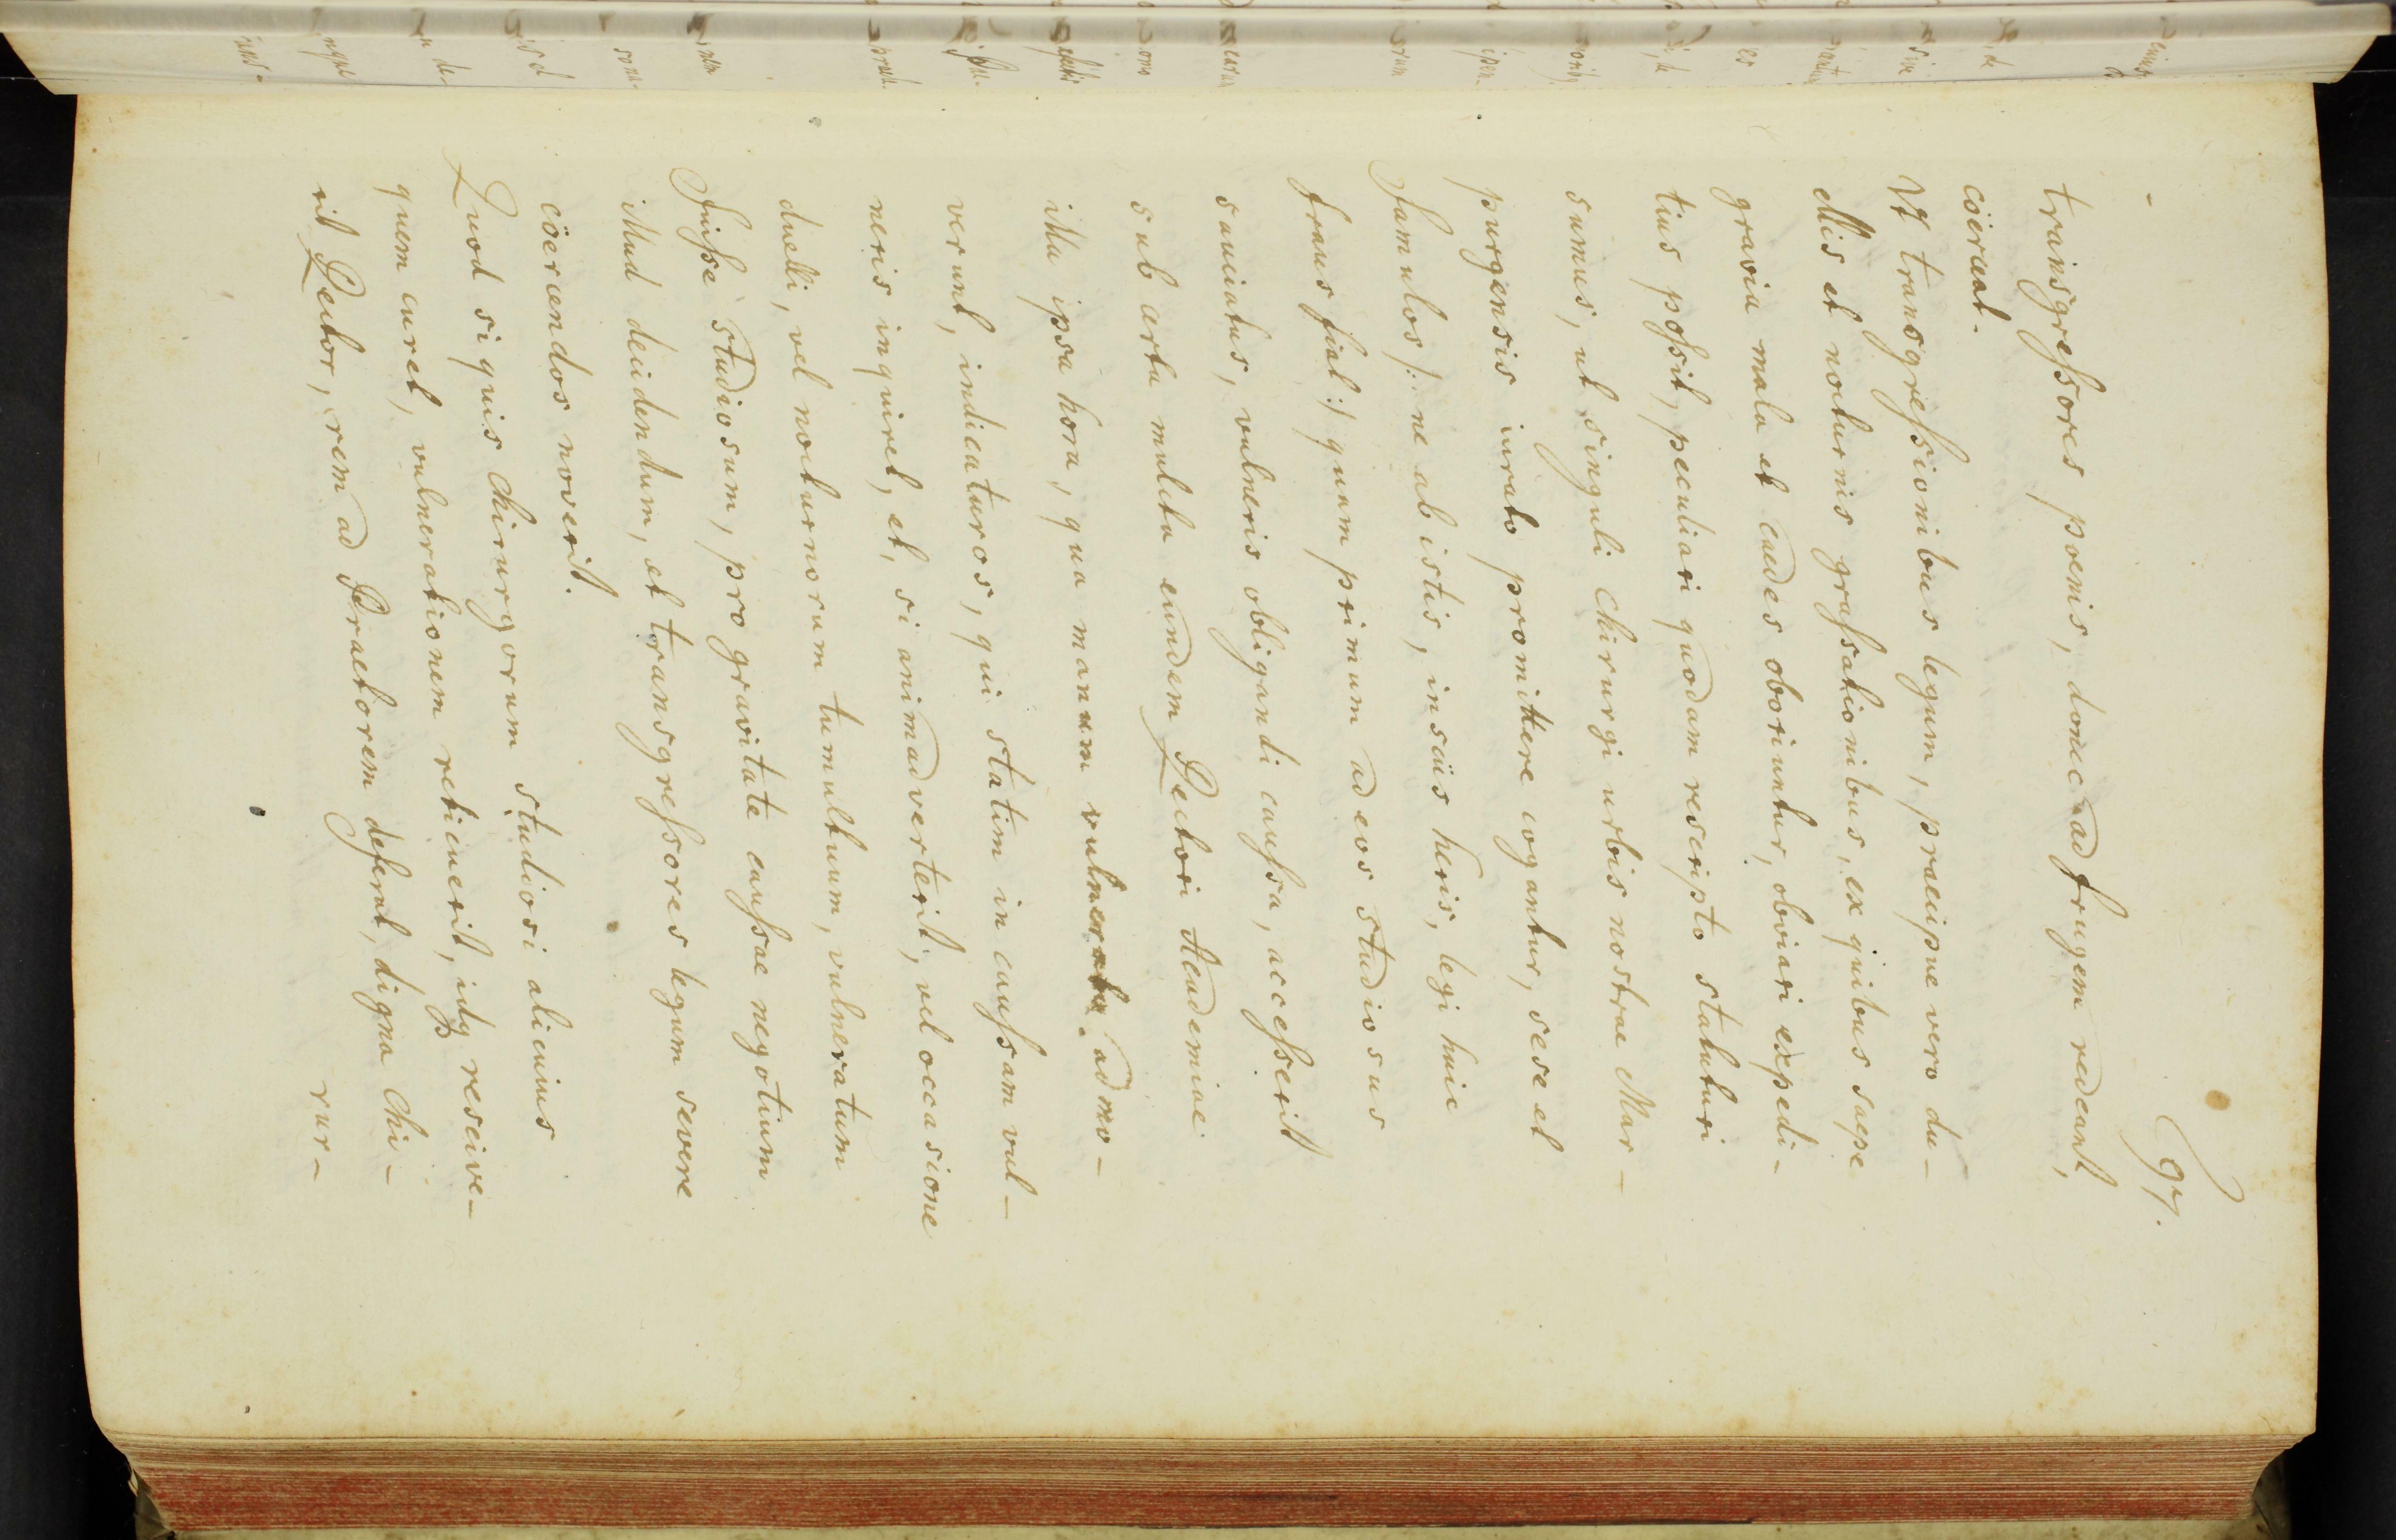 97.
transgressores poenis, donec ad frugem redeant,
coërceat.
Vt transgressionibus legum, praecipue vero du-
ellis et nocturnis grassationibus, ex quibus saepe
gravia mala et caedes oboriuntur, obviari expedi-
tius possit, peculiari quodam rescripto statuturi
sumus, ut singuli chirurgi urbis nostrae Mar-
purgensis iurato promittere cogantur, sese et
famulos /: ne ab istis, insciis heris, legi huic
fraus fiat :/ quum primum ad eos studiosus
sauciatus, vulneris obligandi caussa, accesserit
sub arta mulcta eundem Rectori Academiae
illa ipsa hora, qua manum vulnerato admo-
verunt, indicaturos, qui statim in caussam vul-
neris inquiret, et, si animadverterit, vel occasione
duelli, vel nocturnorum tumultuum, vulneratum
fuisse studiosum, pro gravitate caussae negotium
illud decidendum, et transgressores legum severe
coërcendos noverit.
Quod si quis chirurgorum studiosi alicuius
quem curet, vulnerationem reticuerit, idq resscive-
rit Rector, rem ad Praetorem deferat, digna chi-
rur-